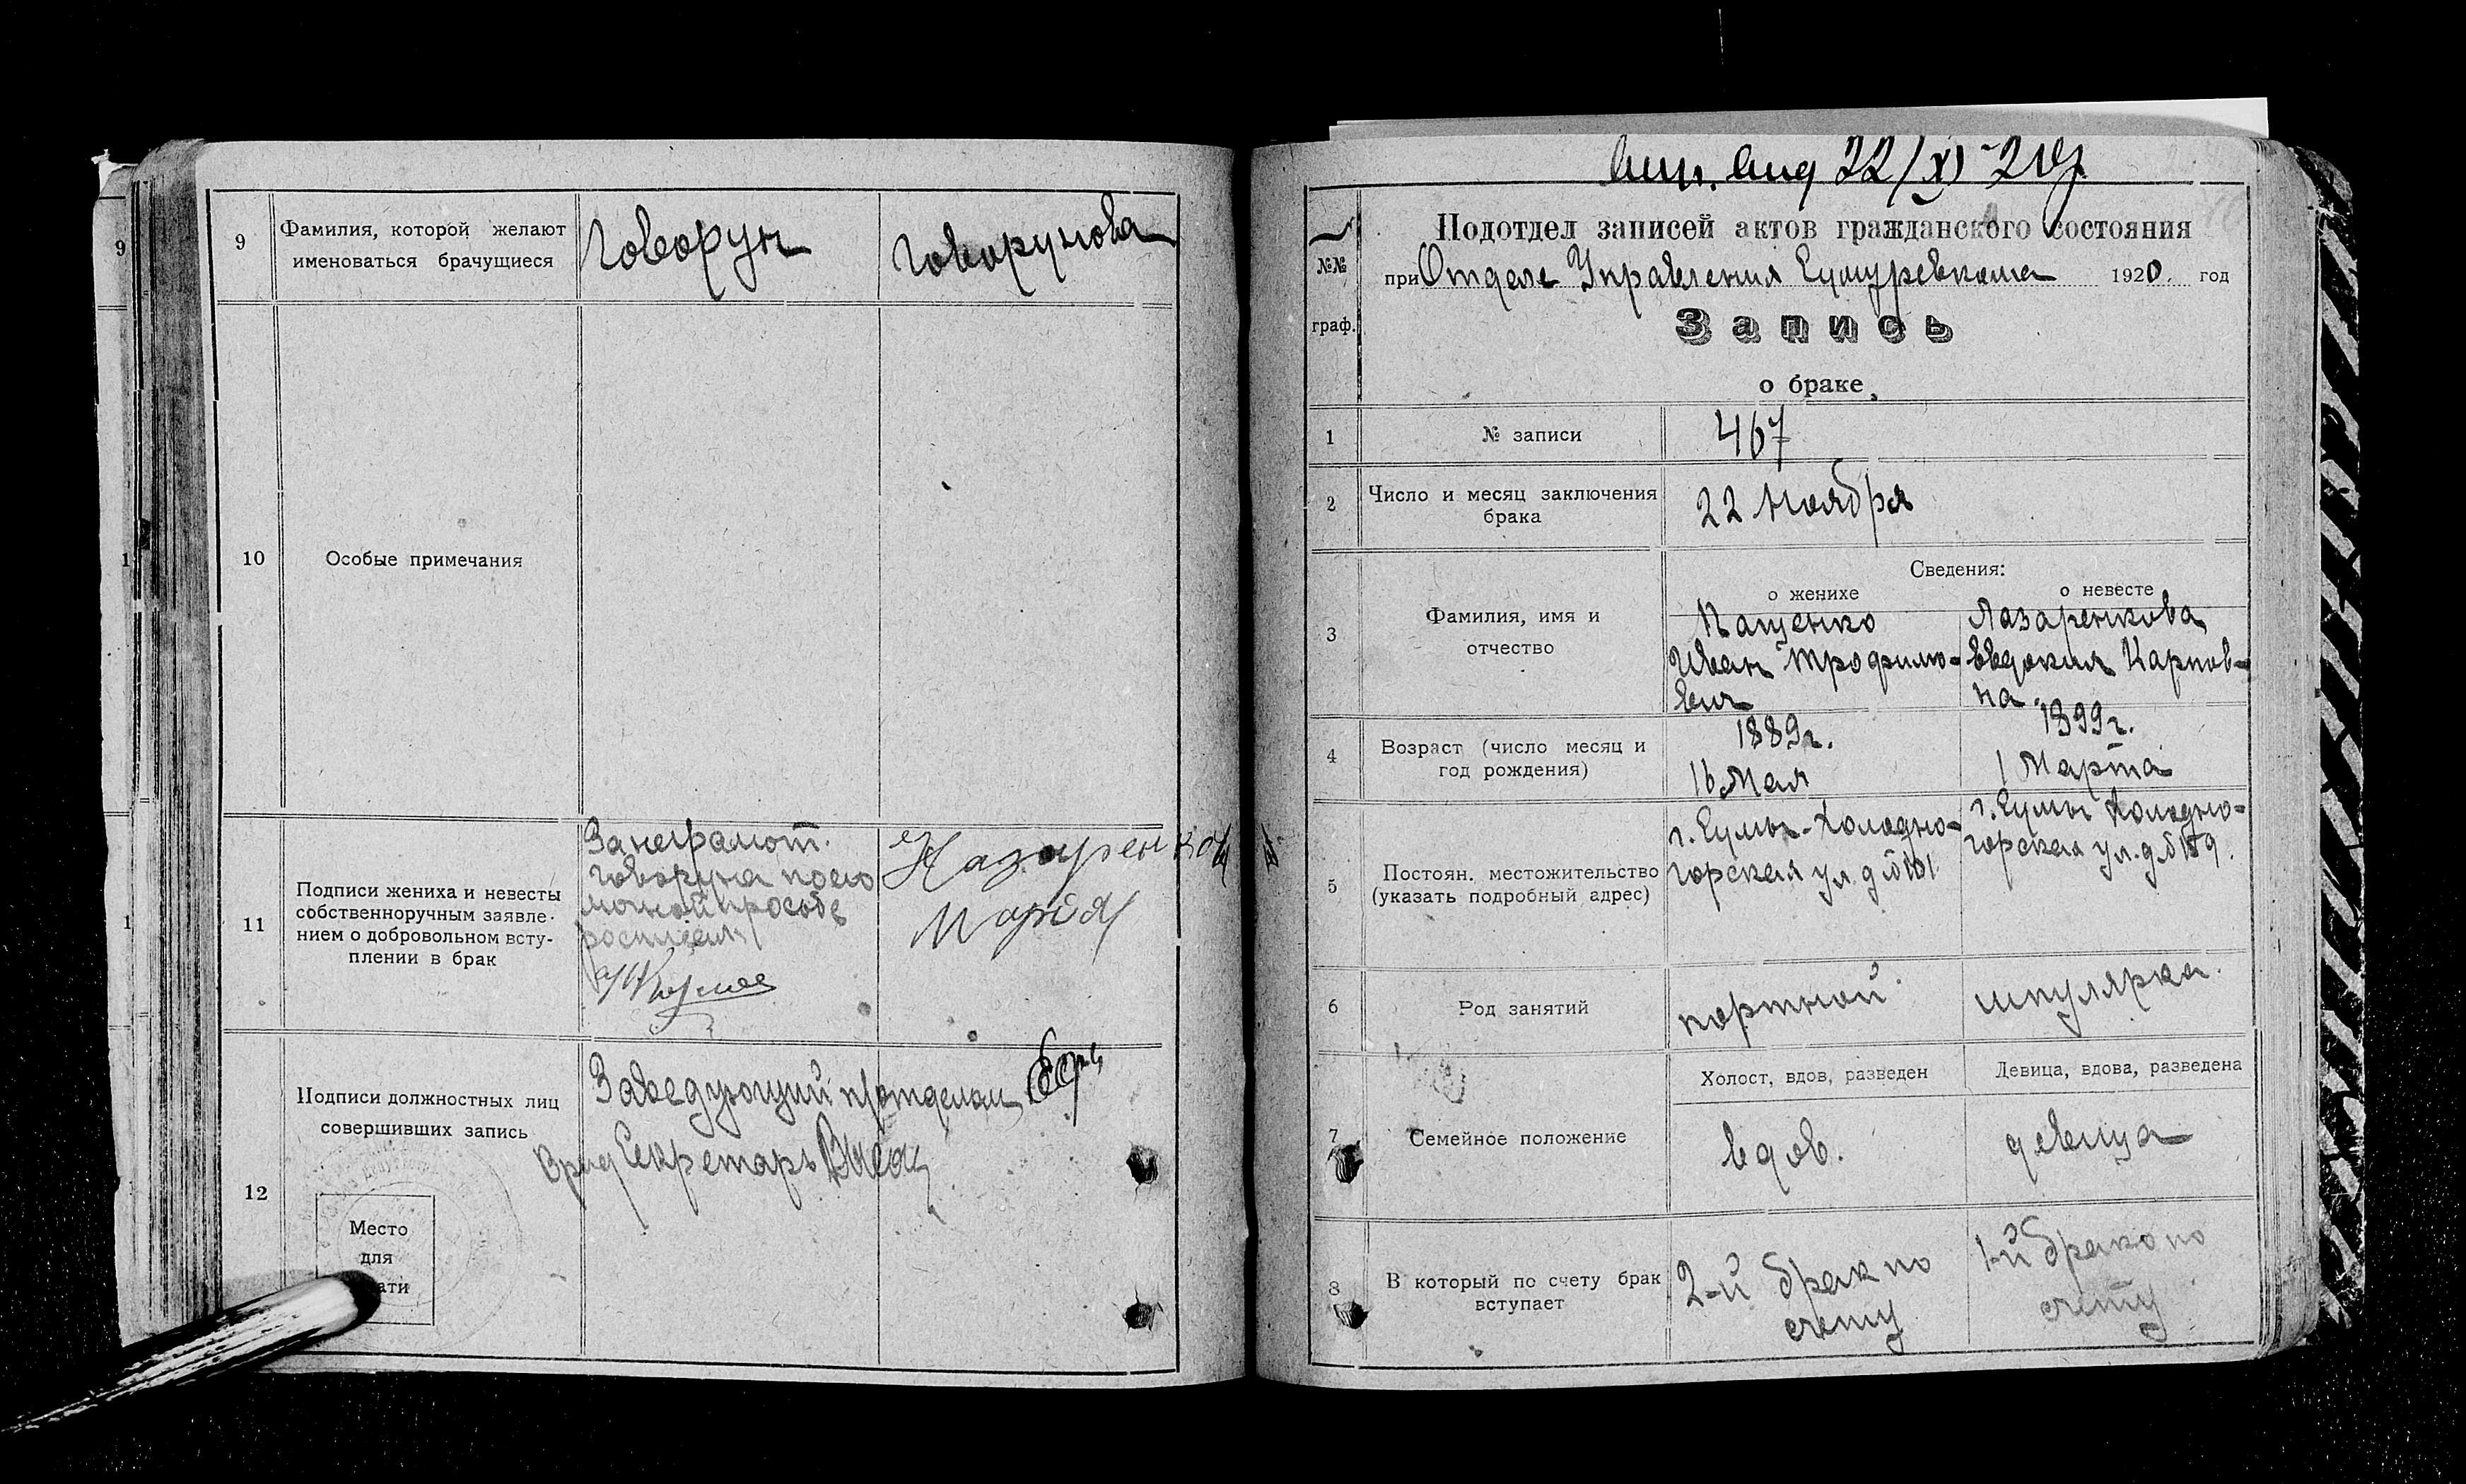 9
Фамилия, которой желают
именоваться брачущиеся
Говорун
Говорунова
10
Особые примечания
11
Подписи жениха и невесты
собственноручным заявле-
нием о добровольном всту-
плении в брак
За неграмот.
Говоруна по его
личной просьбе
росписался
Назаренкова
Марія
12
Подписи должностных лиц
совершивших запись
Заведующий п/отделом
Врид Секретарь
Место
для
22/XI-20г
№№
граф.
Подотдел записей актов гражданского состояния
при Отделе Управления Сумуревкома 1920. год
Запись
о браке
1
№ записи
467
2
Число и месяц заключения
брака
22 Ноября
Сведения:
о женихе
о невесте
3
Фамилия, имя и
отчество
Пащенко
Иван Трофимо-
вич
Лазаренкова
Евдокия Карпов-
на.
4
Возраст (число месяц и
год рождения)
1889г.
16 Мая
1899г.
1 Марта
5
Постоян. местожительство
(указать подробный адрес)
г. Сумы-Холодно-
горская ул. д № 101
г. Сумы Холодно-
горская ул. д № 159.
6
Род занятий
портной
шпулярка.
7
Семейное положение
Холост, вдов, разведен
Девица, вдова, разведена
вдов.
девица
8
В который по счету брак
вступает
2-й брак по
счету
1-й брак по
счету